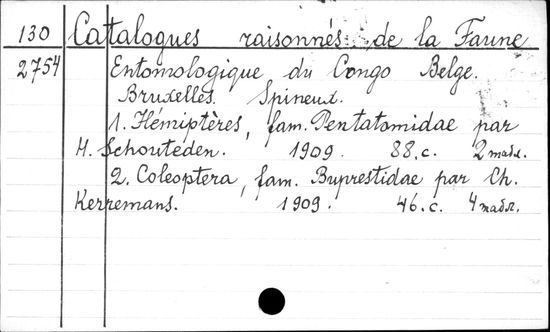 130 Catalogues raisonnés de la Faune
2754 Entomologique du Congo Belge.
Bruxelles. Spineux.
1. Hémiptères, fam. Pentatomidae par
H. Schouteden. 1909. 88.c. 2 табл.
2. Coleoptera, fam. Buprestidae par Ch.
Kerremans. 1909. 46.c. 4 табл.